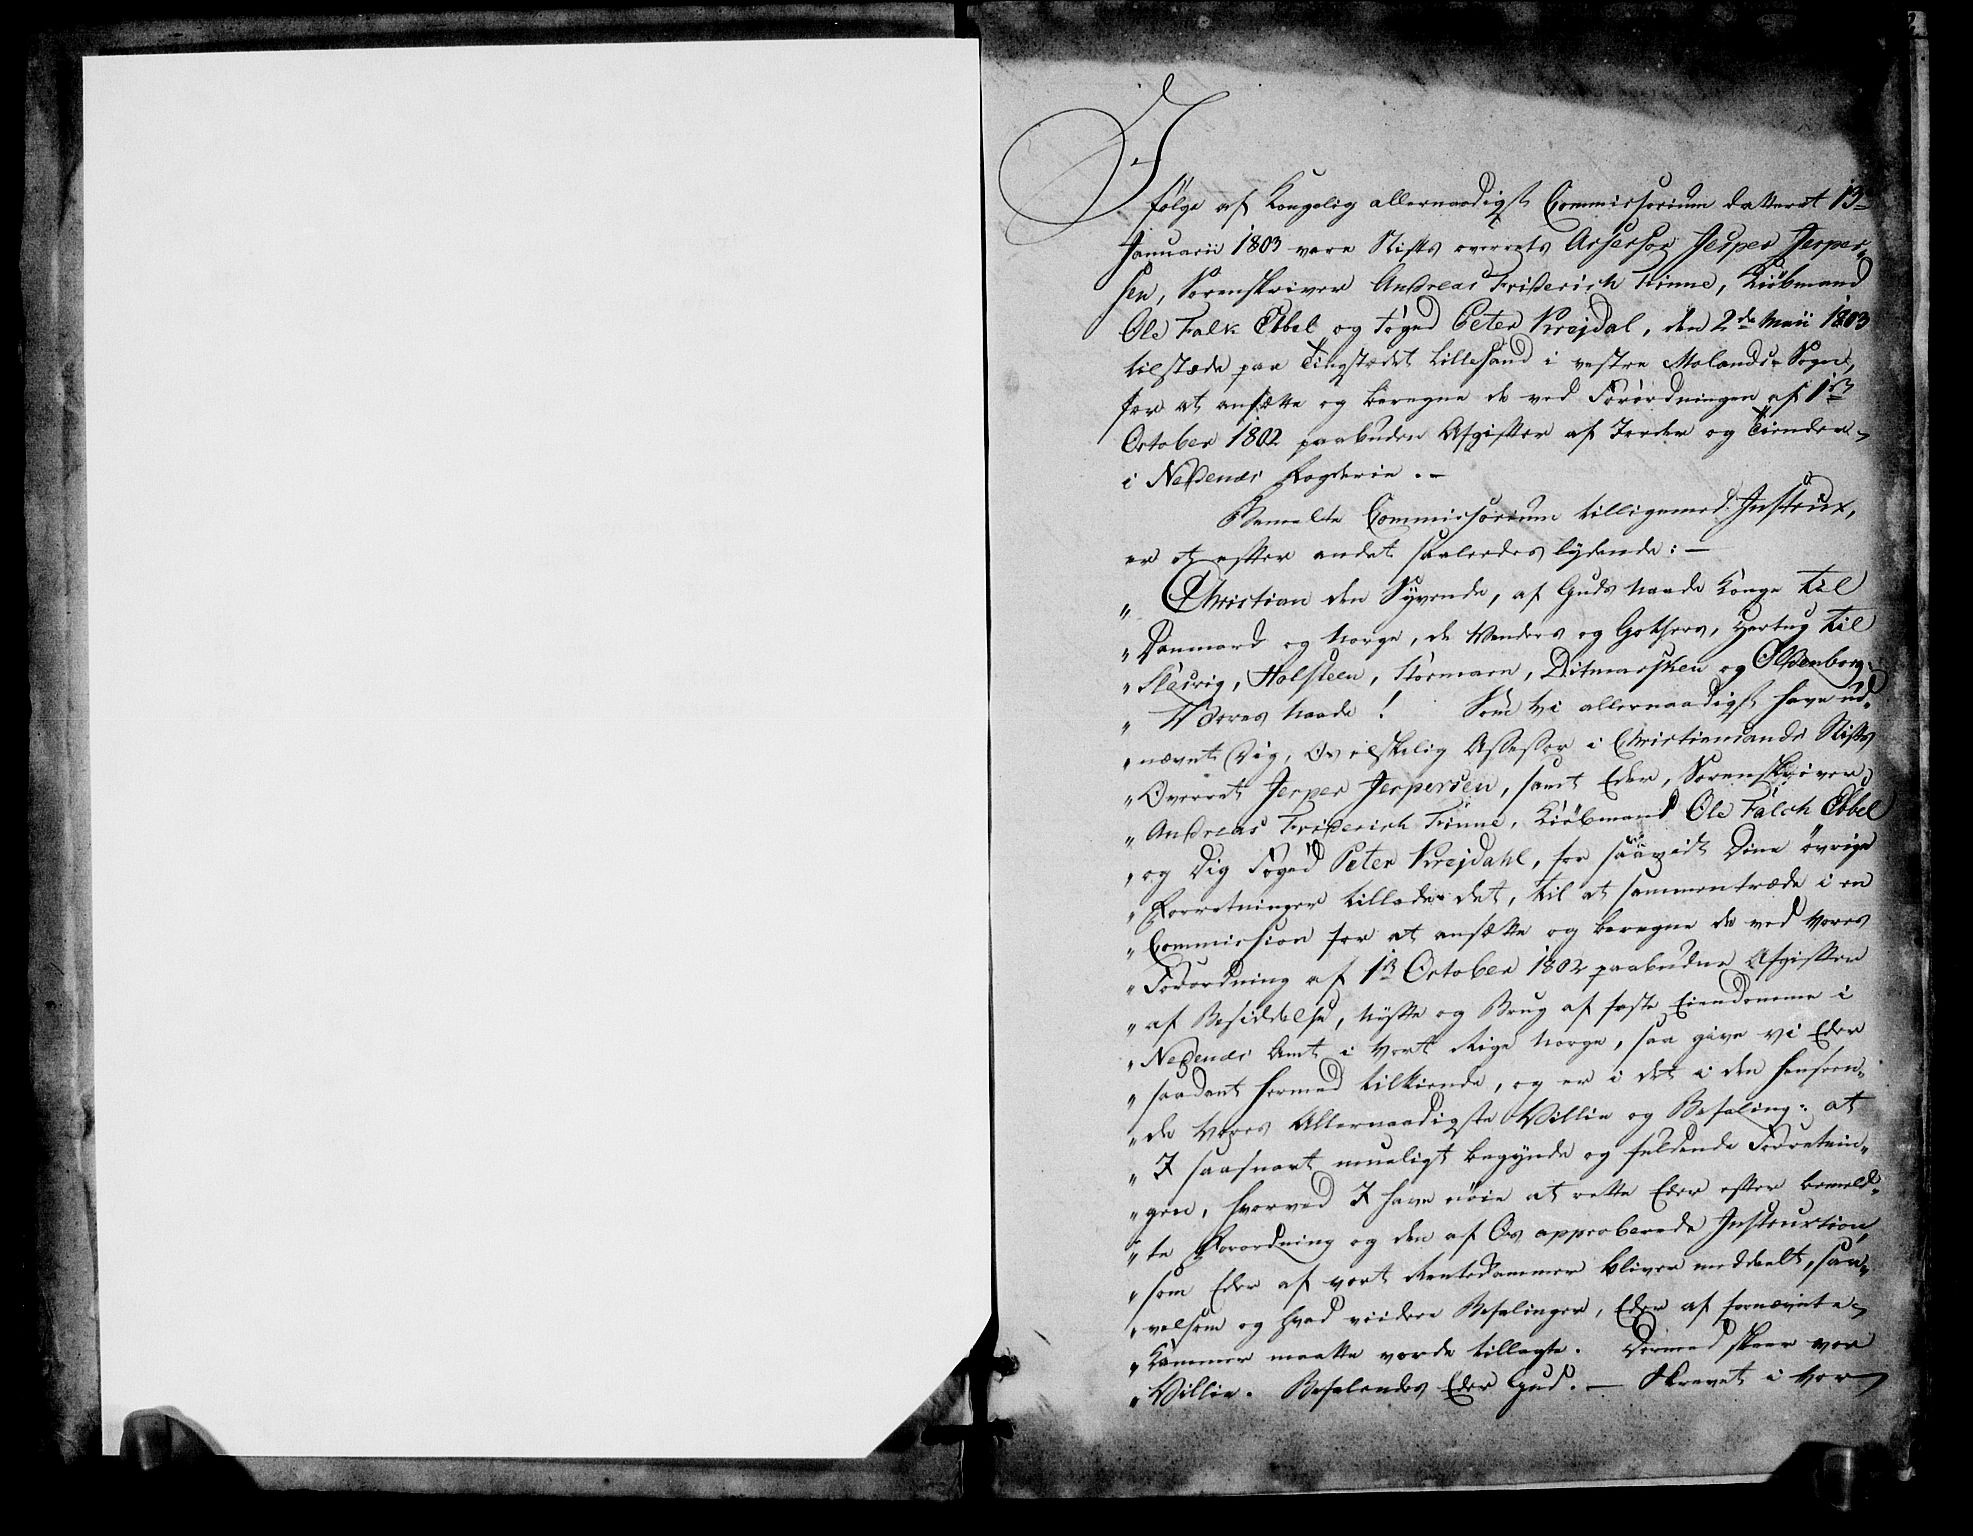 I
følge af Kongelig allernaadigst Commissorium datteret 13de
Januarii 1803 vare Stifts overrets Assessor Jesper Jesper-
sen, Sorenskriver Andreas Friderich Finne, Kiöbmand
Ole Falk Ebbel og Foged Peter Krejdal, den 2de Maii 1803
tilstæde paa Tingstædet Lillesand i vestre Molands Sogn,
for at ansætte og beregne de ved Forordningen af 1ste
October 1802 paabudne Afgifter af Jorder og Tiender
i Nedenæs Fogderie. -
Bemelte Commissorium tilligemed Instrux,
er et efter andet saaledes lydende: -
„ Christian den Syvende, af Guds Naade Konge til
„ Danmark og Norge, de Venders og Gothers, Hertug til
„ Slesvig, Holsteen, Stormarn, Ditmarsken og Oldenborg.
„ Vores Naade! Som Vi allernaadigst have ud-
„ nævnt Dig, Os elskelig Assessor i Christiansands Stifts
„ Overret Jesper Jespersen, samt Eder, Sorenskriver
„ Andreas Friderich Finne, Kiöbmand Ole Falch Ebbel
„ og Dig Foged Peter Krejdahl, for saavidt Dine øvrige
„ Forretninger tillader det, til at sammentræde i en
„ Commission for at ansætte og beregne de ved Vores
„ Forordning af 1ste October 1802 paabudne Afgifter
„ af Besiddelse, Nytte og Brug af faste Eiendomme i
„ Nedenæs Amt i Vort Rige Norge, saa give Vi Eder
„ saadant hermed tilkiende, og er i det i den Henseen-
„ de Vores Allernaadigste Villie og Befaling: at
„ I saasnart mueligt begynde og fuldende Forretnin-
„ gen, hvorved I have nöie at rette Eder efter bemeld-
„ te Forordning og den af Os approberede Instruxtion,
„ som Eder af vort Rentekammer bliver meddeelt, saa-
„ velsom og hvad viidere Befalinger, Eder af fornævnte
„ Kammer maatte vorde tillagte. Dermed skeer vor
„ Villie. Befalendes Eder Gud. - Skrevet i vor